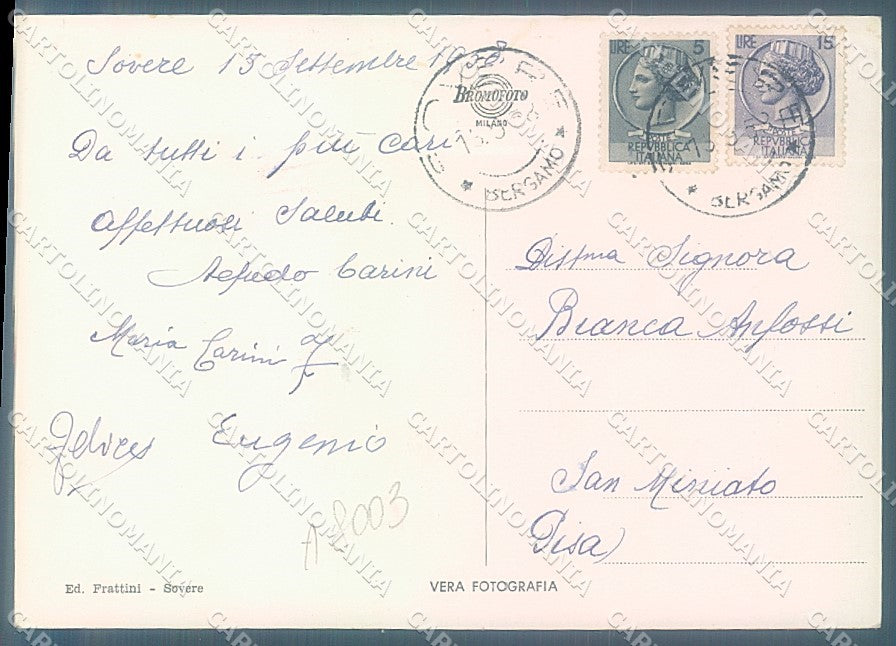 Sovere 15 Settembre
Da tutti i più cari
affettuosi saluti
Alfredo Carini
Maria Carini
Eugenio
A8003
Ed. Frattini - Sovere
VERA FOTOGRAFIA
BROMOFOTO
MILANO
SOVERE
BERGAMO
LIRE 5
REPVBBLICA
ITALIANA
LIRE 15
REPVBBLICA
ITALIANA
BERGAMO
Signora
Bianca Anfossi
San Miniato
Pisa)
CARTOLINOMANIA